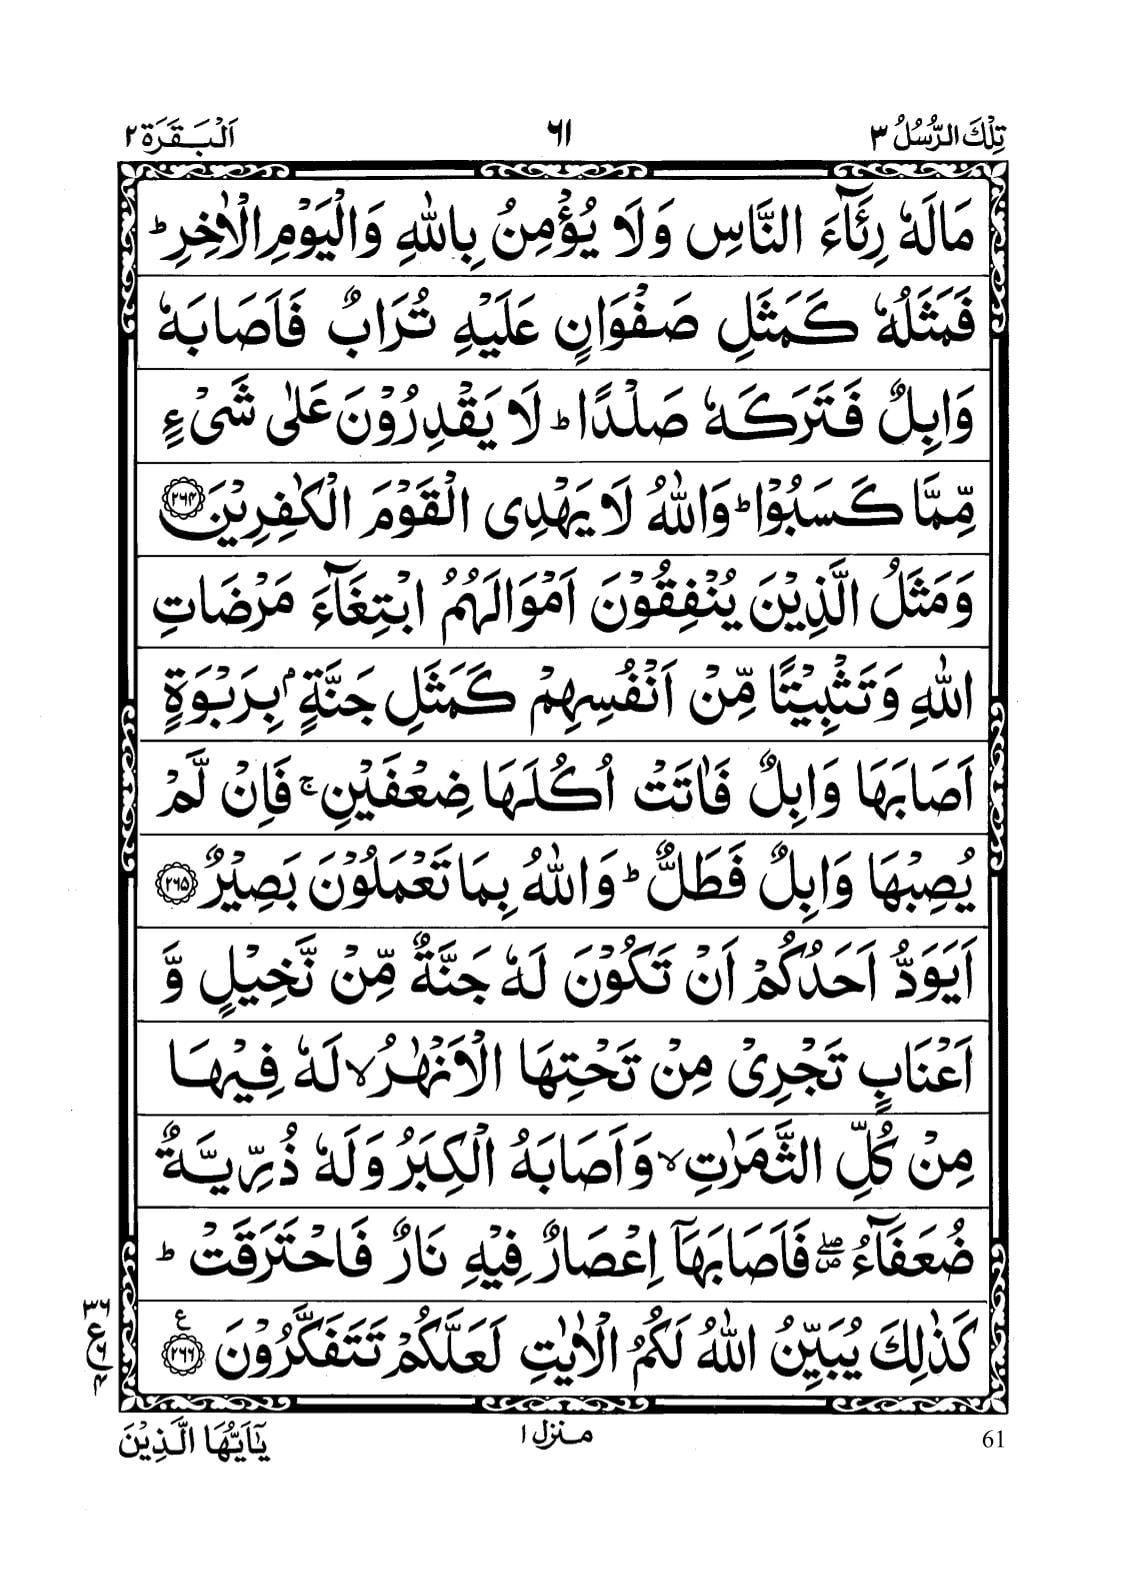 تِلْكَ الرُّسُلُ ۳
٦١
اَلْبَقَرَة ۲
مَالَهٗ رِئَآءَ النَّاسِ وَلَا يُؤْمِنُ بِاللّٰهِ وَالْيَوْمِ الْاٰخِرِ ؕ
فَمَثَلُهٗ كَمَثَلِ صَفْوَانٍ عَلَيْهِ تُرَابٌ فَاَصَابَهٗ
وَابِلٌ فَتَرَكَهٗ صَلْدًا ؕ لَا يَقْدِرُوْنَ عَلٰى شَیْءٍ
مِّمَّا كَسَبُوْا ؕ وَاللّٰهُ لَا يَهْدِى الْقَوْمَ الْكٰفِرِيْنَ ۲۶۴
وَمَثَلُ الَّذِيْنَ يُنْفِقُوْنَ اَمْوَالَهُمُ ابْتِغَآءَ مَرْضَاتِ
اللّٰهِ وَتَثْبِيْتًا مِّنْ اَنْفُسِهِمْ كَمَثَلِ جَنَّةٍۭ بِرَبْوَةٍ
اَصَابَهَا وَابِلٌ فَاٰتَتْ اُكُلَهَا ضِعْفَيْنِ ۚ فَاِنْ لَّمْ
يُصِبْهَا وَابِلٌ فَطَلٌّ ؕ وَاللّٰهُ بِمَا تَعْمَلُوْنَ بَصِيْرٌ ۲۶۵
اَيَوَدُّ اَحَدُكُمْ اَنْ تَكُوْنَ لَهٗ جَنَّةٌ مِّنْ نَّخِيْلٍ وَّ
اَعْنَابٍ تَجْرِىْ مِنْ تَحْتِهَا الْاَنْهٰرُ ۙ لَهٗ فِيْهَا
مِنْ كُلِّ الثَّمَرٰتِ ۙ وَاَصَابَهُ الْكِبَرُ وَلَهٗ ذُرِّيَّةٌ
ضُعَفَآءُ ۖ فَاَصَابَهَاۤ اِعْصَارٌ فِيْهِ نَارٌ فَاحْتَرَقَتْ ؕ
كَذٰلِكَ يُبَيِّنُ اللّٰهُ لَكُمُ الْاٰيٰتِ لَعَلَّكُمْ تَتَفَكَّرُوْنَ ۲۶۶ ع
۳۶
ع
۶
۴
يٰۤاَيُّهَا الَّذِيْنَ
منزل ۱
61